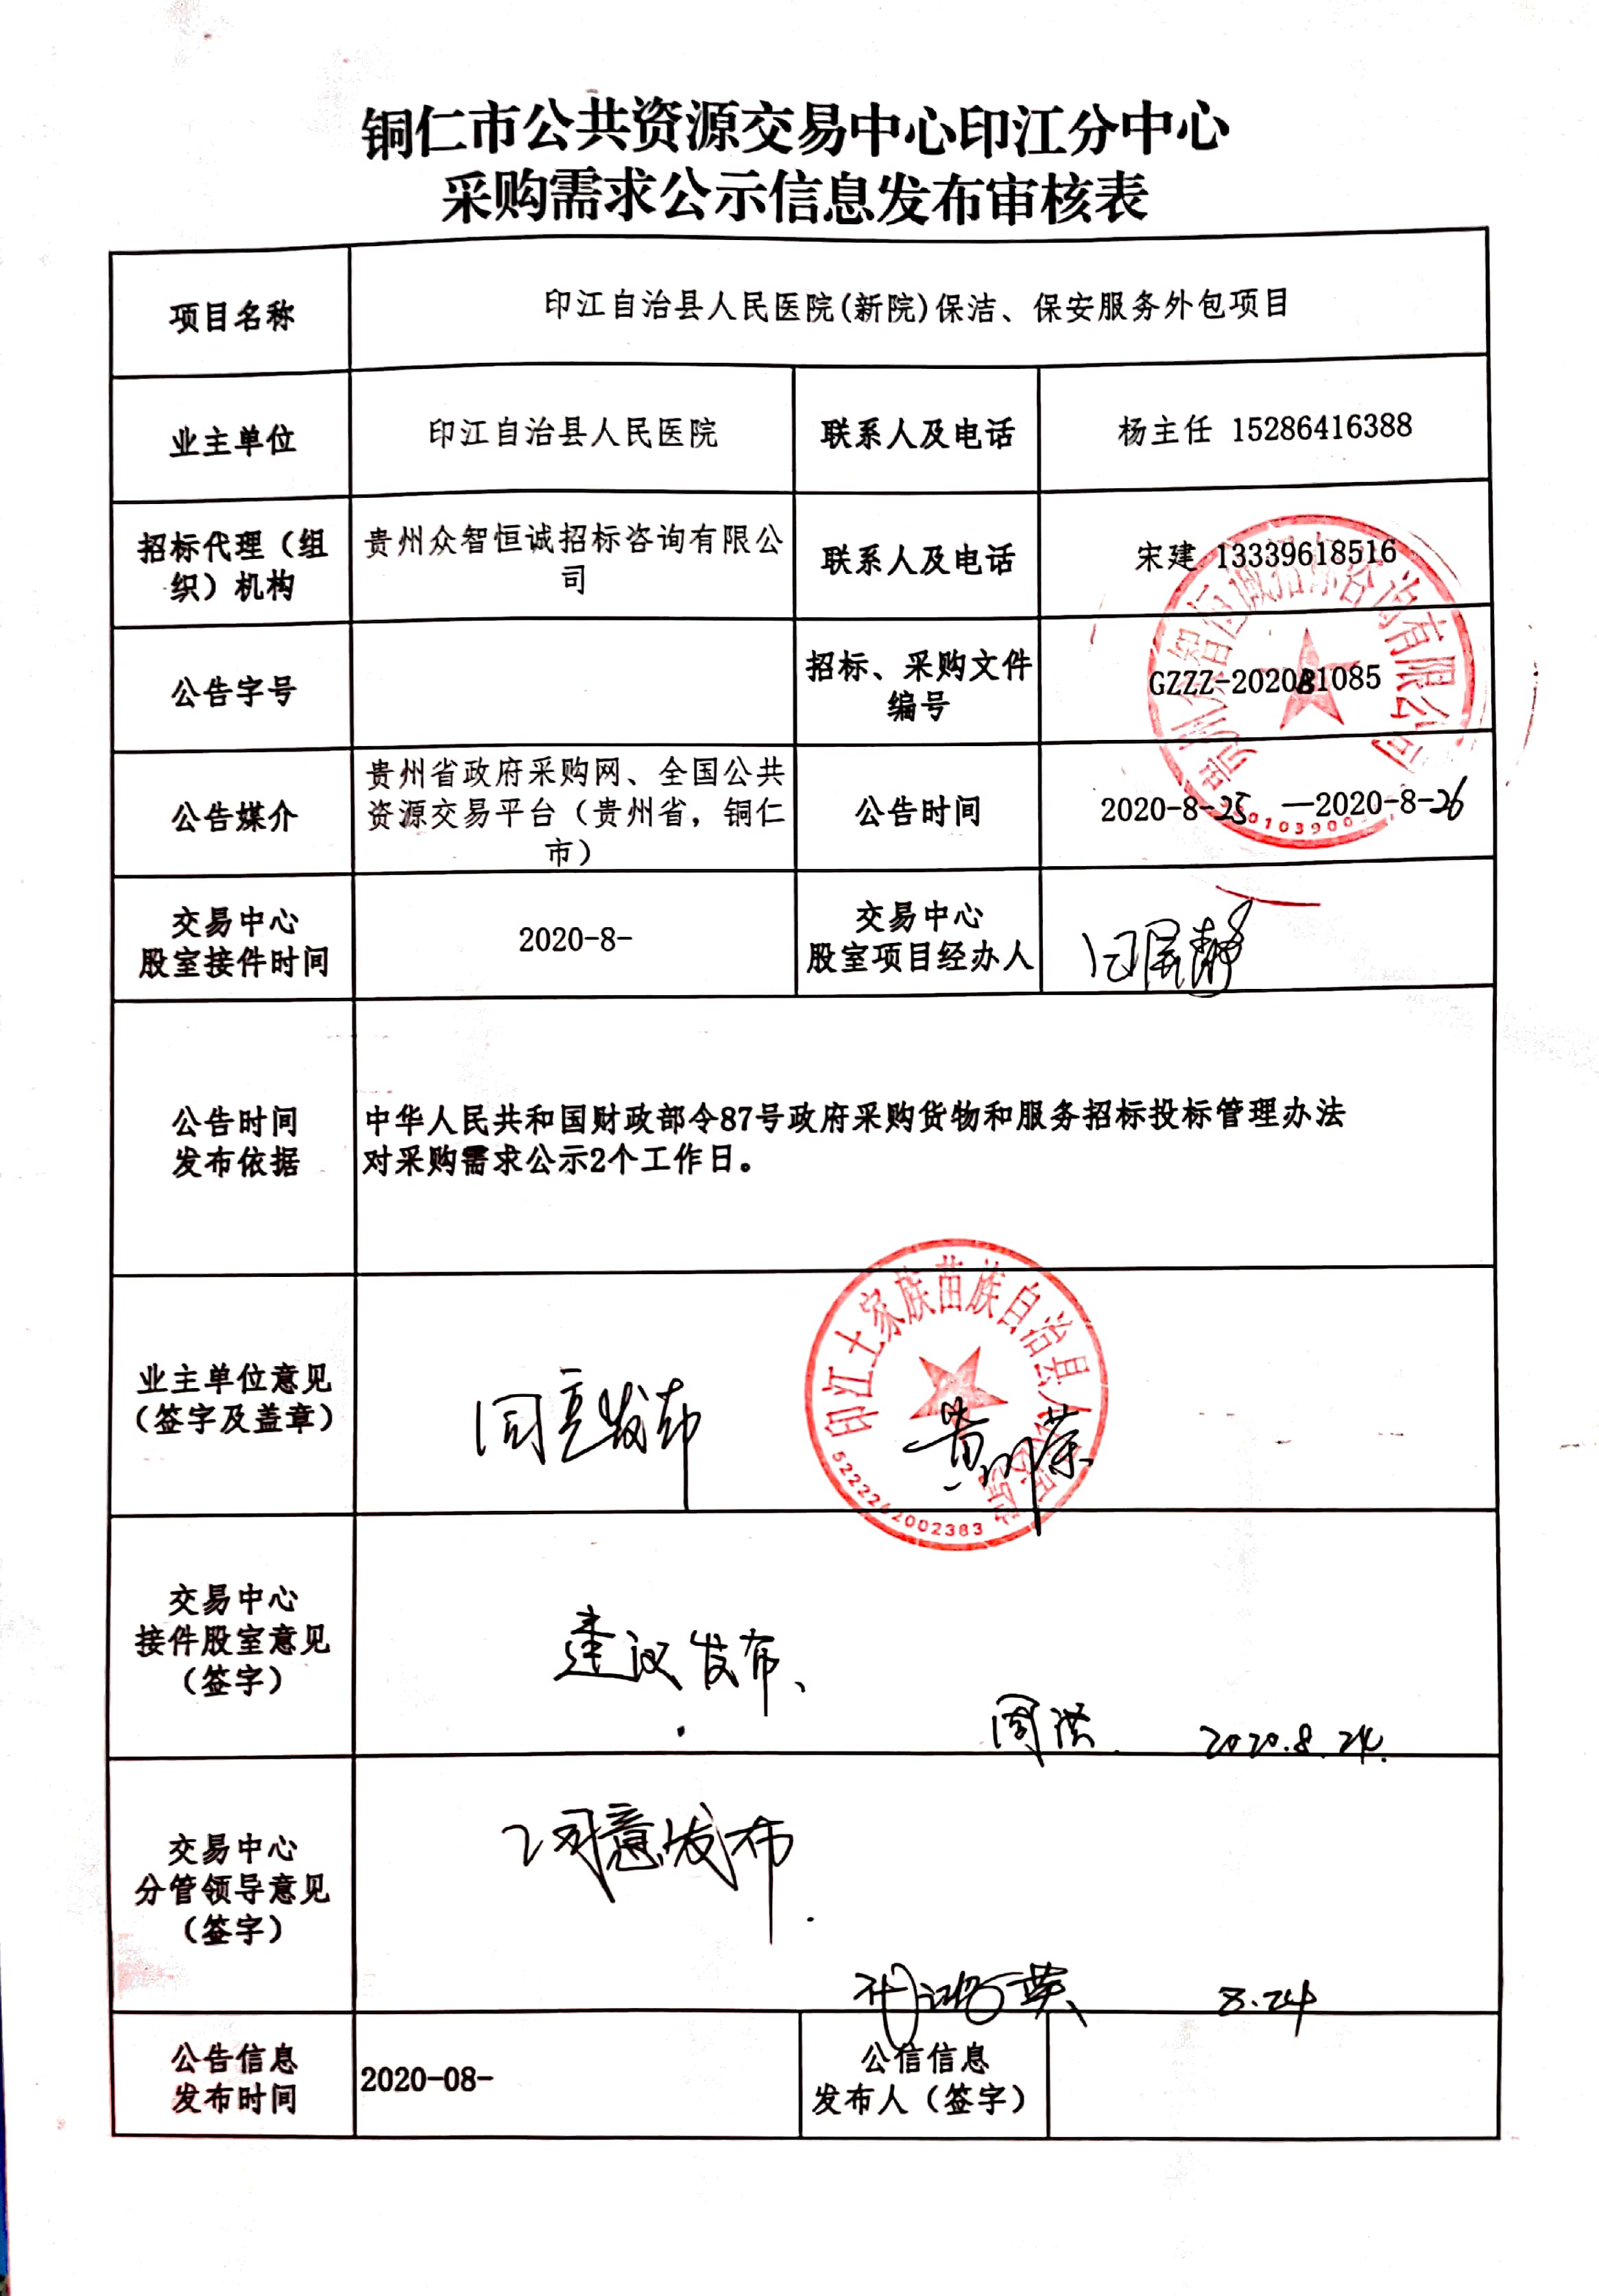 铜仁市公共资源交易中心印江分中心
采购需求公示信息发布审核表
项目名称
印江自治县人民医院(新院)保洁、保安服务外包项目
业主单位
印江自治县人民医院
联系人及电话
杨主任 15286416388
招标代理（组
织）机构
贵州众智恒诚招标咨询有限公
司
联系人及电话
宋建 13339618516
公告字号
招标、采购文件
编号
公告媒介
贵州省政府采购网、全国公共
资源交易平台（贵州省，铜仁
市）
公告时间
2020-8-25 —2020-8-26
交易中心
股室接件时间
2020-8-
交易中心
股室项目经办人
公告时间
发布依据
中华人民共和国财政部令87号政府采购货物和服务招标投标管理办法
对采购需求公示2个工作日。
业主单位意见
（签字及盖章）
同意发布
印江土家族苗族自治县人民医院
交易中心
接件股室意见
（签字）
建议发布、
周洪 2020.8.24.
交易中心
分管领导意见
（签字）
同意发布.
8.24
公告信息
发布时间
2020-08-
公信信息
发布人（签字）